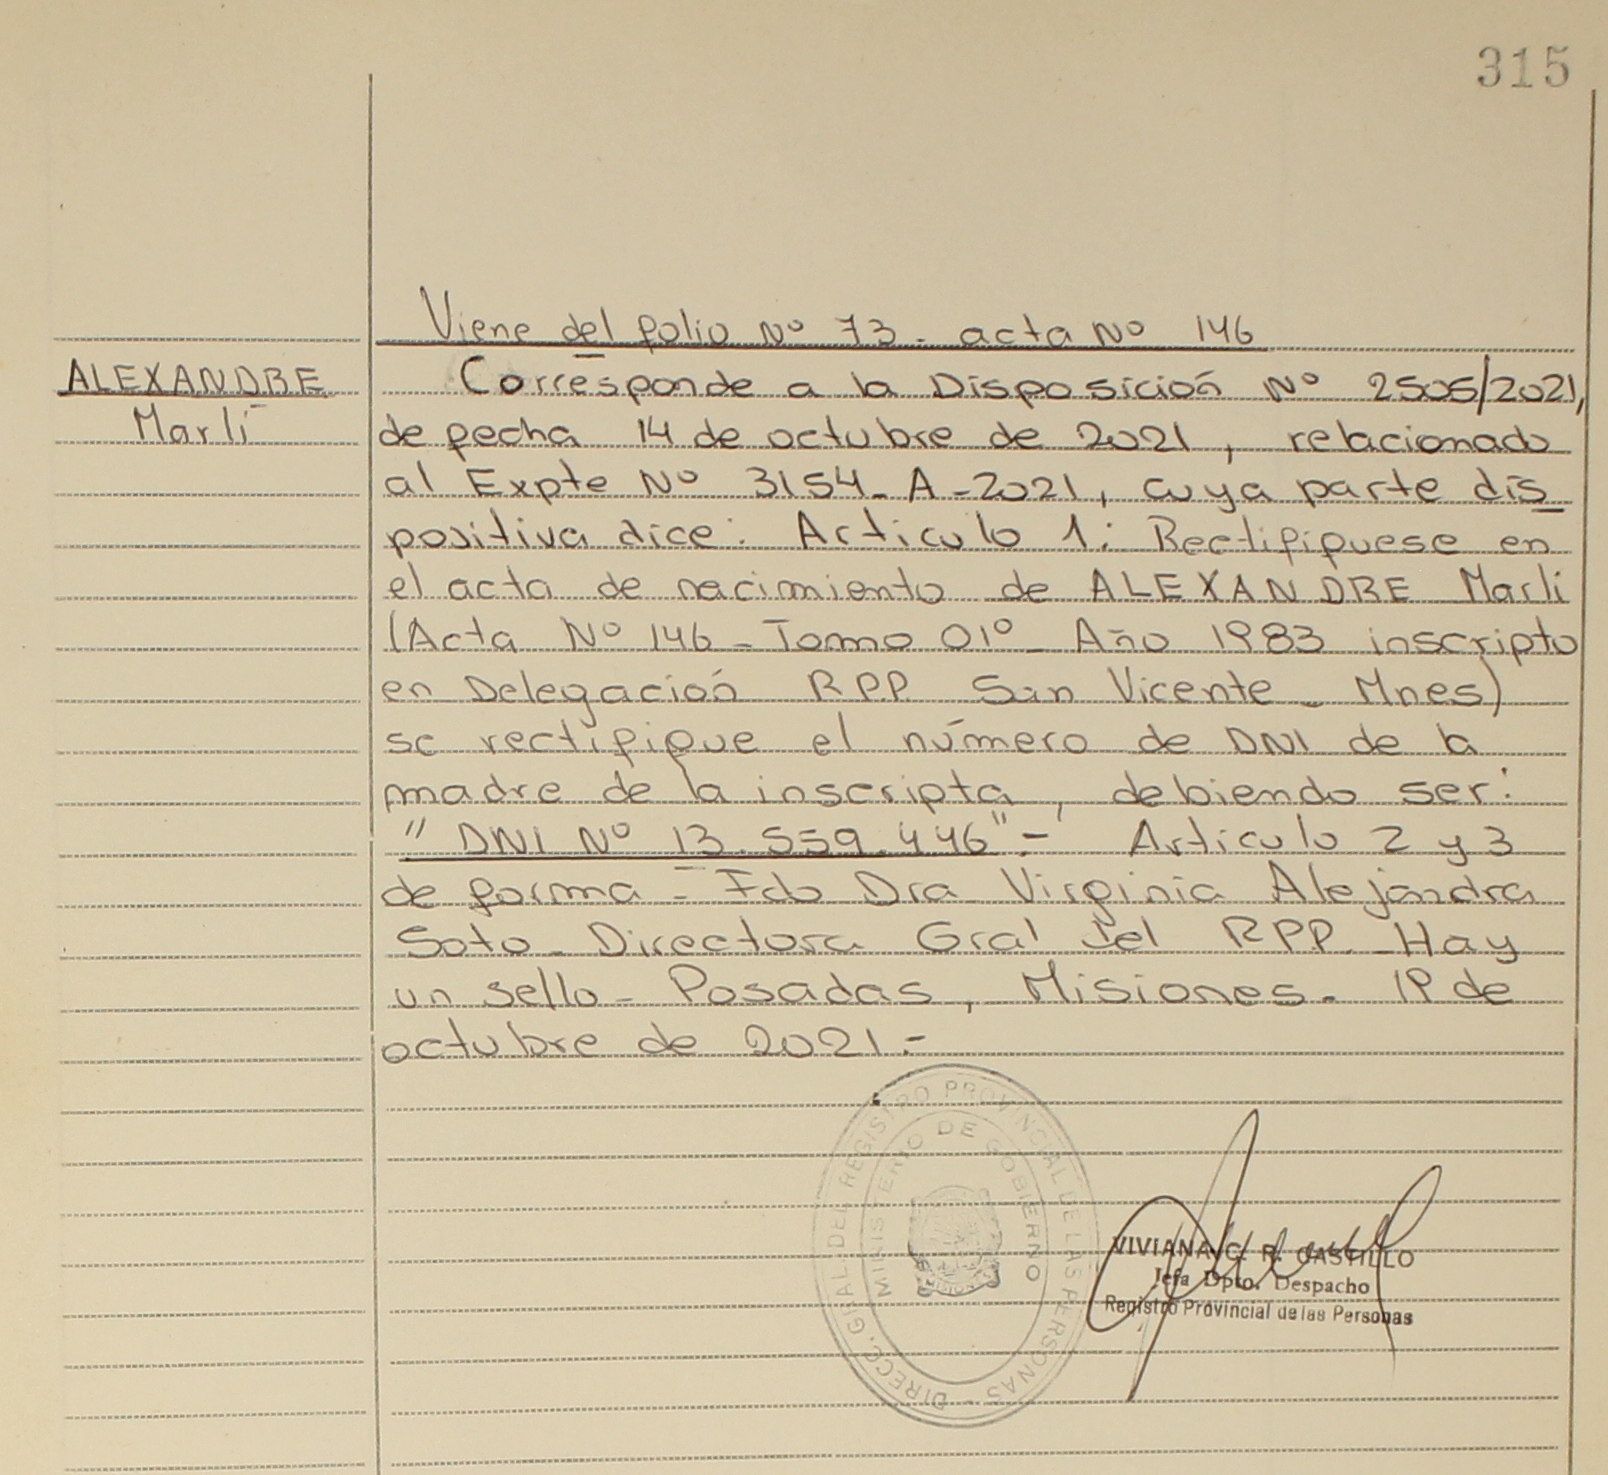 315
Viene del folio Nº 73 - acta Nº 146
ALEXANDRE
Marli
Corresponde a la Disposición Nº 2505/2021,
de fecha 14 de octubre de 2021, relacionado
al Expte Nº 3154-A-2021, cuya parte dis
positiva dice: Articulo 1: Rectifiquese en
el acta de nacimiento de ALEXANDRE Marli
(Acta Nº 146 - Tomo 01º - Año 1983 inscripto
en Delegación RPP San Vicente - Mnes)
se rectifique el número de DNI de la
madre de la inscripta, debiendo ser:
"DNI Nº 13.559.446".- Articulo 2 y 3
de forma - Fdo Dra Virginia Alejandra
Soto - Directora Gral del RPP. Hay
un sello - Posadas, Misiones. 19 de
octubre de 2021.-
DIRECC. GRAL. DEL REGISTRO PROVINCIAL DE LAS PERSONAS -
MINISTERIO DE GOBIERNO
VIVIANA C. R. CASTILLO
Jefa Dpto. Despacho
Registro Provincial de las Personas